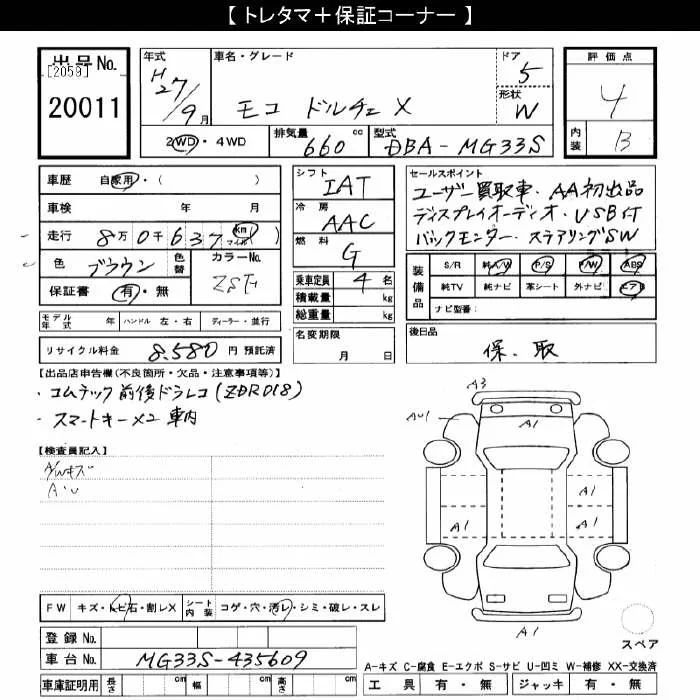 【 トレタマ＋保証コーナー 】
出品No.
[2059]
20011
年式
H27/9月
車名・グレード
モコ ドルチェ X
ドア
5
形状
W
評価点
4
内装
B
2WD・4WD
排気量
660 cc
型式
DBA-MG33S
車歴 自家用・( )
車検 年 月
走行 8万0千637 (km マイル)
色 ブラウン 色替 カラーNo. ZSF
保証書 有・無
シフト
IAT
冷房
AAC
燃料
G
乗車定員 4 名
積載量 kg
総重量 kg
名変期限
月 日
セールスポイント
ユーザー買取車・AA初出品
ディスプレイオーディオ・USB付
バックモニター・ステアリングSW
装備品
S/R 純A/W P/S P/W ABS
純TV 純ナビ 革シート 外ナビ エアB
ナビ型番：
モデル年式 年 ハンドル 左・右 ディーラー・並行
リサイクル料金 8,580 円 預託済
後日品
保、取
【出品店申告欄(不良箇所・欠品・注意事項等)】
・コムテック 前後ドラレコ(ZDR018)
・スマートキー×2 車内
【検査員記入】
A/Wキズ
A・U
A3
AU1
A1
A1
A1
A1
A1
A1
FW キズ・トビ石・割レX シート内装 コゲ・穴・汚レ・シミ・破レ・スレ
登録 No.
車台 No. MG33S-435609
車庫証明用 長さ cm 幅 cm 高さ cm
スペア
A-キズ C-腐食 E-エクボ S-サビ U-凹ミ W-補修 XX-交換済
工具 有・無 ジャッキ 有・無